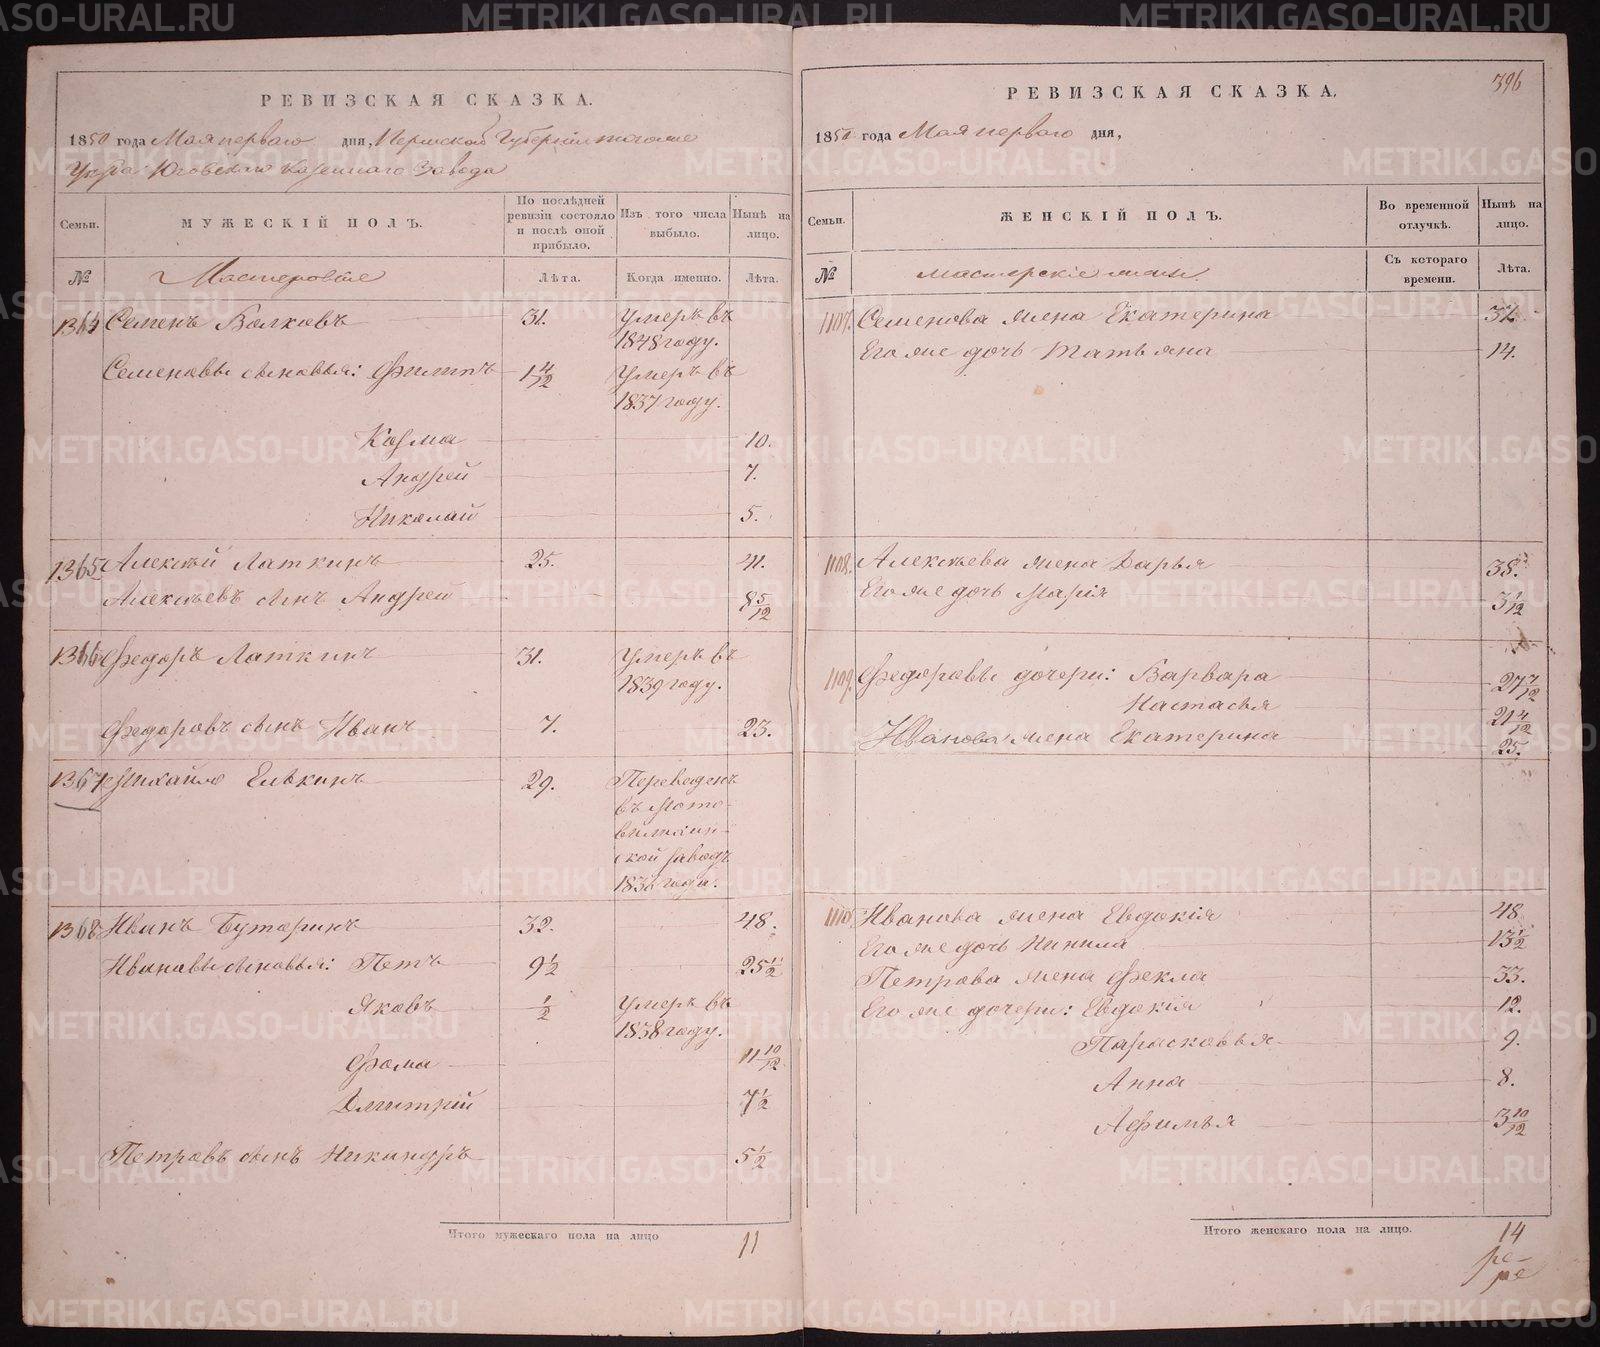 РЕВИЗСКАЯ СКАЗКА.
1850 года Мая перваго дня, Пермской Губернии тогоже
Уезда Юговскаго Казеннаго Завода
Семьи.
МУЖЕСКІЙ ПОЛЪ.
По послѣдней ревизіи состояло и послѣ оной прибыло.
Изъ того числа выбыло.
Нынѣ на лицо.
№
Мастеровые
Лѣта.
Когда именно.
Лѣта.
1364 Семенъ Волковъ 31. Умеръ въ
1848 году.
Семеновы сыновья: Филипъ 1 4/12 Умеръ въ
1837 году.
Козма 10.
Андрей 7.
Николай 5.
1365 Алексѣй Латкинъ 25. 41.
Алексѣевъ сынъ Андрей 8 5/12
1366 Федоръ Латкинъ 31. Умеръ въ
1839 году.
Федоровъ сынъ Иванъ 7. 23.
1367 Михайло Елькинъ 29. Переведенъ
въ Мото-
вилихин-
ской заводъ
1836 году.
1368 Иванъ Бутаринъ 32. 48.
Ивановы сыновья: Петъ 9 1/2 25 1/2
Яковъ 1/2 Умеръ въ
1838 году.
Фома 11 10/12
Дмитрій 7 1/2
Петровъ сынъ Никандръ 5 1/2
Итого мужескаго пола на лицо 11
396
РЕВИЗСКАЯ СКАЗКА,
1850 года Мая перваго дня,
Семьи.
ЖЕНСКІЙ ПОЛЪ.
Во временной отлучкѣ.
Нынѣ на лицо.
№
Мастерскіе жены
Съ котораго времени.
Лѣта.
1107. Семенова жена Екатерина
Его же дочь Татьяна 14.
1108. Алексѣева жена Дарья 38.
Его же дочь Марія 3 1/12
1109. Федоровы дочери: Варвара 27 7/12
Настасья 21 4/12
Иванова жена Екатерина 25.
1110. Иванова жена Евдокія 48
Его же дочь Ненила 13 1/2
Петрова жена Фекла 33.
Его же дочери: Евдокія 12.
Парасковья 9.
Анна 8.
Афимья 3 10/12
Итого женскаго пола на лицо. 14
METRIKI.GASO-URAL.RU